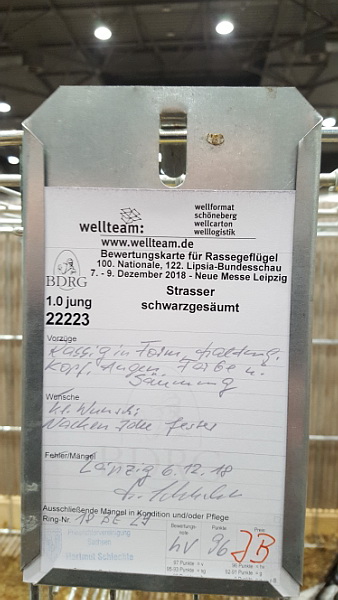 wellteam:
wellformat
schöneberg
wellcarton
welllogistik
www.wellteam.de
Bewertungskarte für Rassegeflügel
100. Nationale, 122. Lipsia-Bundesschau
7. - 9. Dezember 2018 - Neue Messe Leipzig
BDRG
1.0 jung
22223
Strasser
schwarzgesäumt
Vorzüge
Rassig in Form, Haltung,
Kopf, Augen, Farbe u.
Säumung
Wünsche
kl. Wunsch:
Nacken fester
Fehler/Mängel
Leipzig 6.12.18
Ausschließende Mängel in Kondition und/oder Pflege
Ring-Nr. 18 BE 27
Bewertungs-
note
Punkte
Preis
hv 96 JB
97 Punkte = v